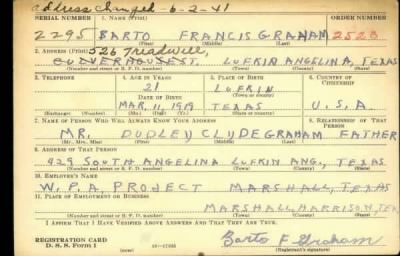 address changed - 6-2-41
SERIAL NUMBER 1. NAME (Print) ORDER NUMBER
2295 BARTO FRANCIS GRAHAM 2523
(First) (Middle) (Last)
2. ADDRESS (Print) 526 Treadwell,
LUFKIN ANGELINA, TEXAS
(Number and street or R. F. D. number) (Town) (County) (State)
3. TELEPHONE 4. AGE IN YEARS 5. PLACE OF BIRTH 6. COUNTRY OF CITIZENSHIP
21 LUFKIN
DATE OF BIRTH (Town or county)
MAR. 11, 1919 TEXAS U.S.A.
(Exchange) (Number) (Mo.) (Day) (Yr.) (State or country)
7. NAME OF PERSON WHO WILL ALWAYS KNOW YOUR ADDRESS 8. RELATIONSHIP OF THAT PERSON
MR. DUDLEY CLYDE GRAHAM FATHER
(Mr., Mrs., Miss) (First) (Middle) (Last)
9. ADDRESS OF THAT PERSON
429 SOUTH ANGELINA LUFKIN ANG., TEXAS
(Number and street or R. F. D. number) (Town) (County) (State)
10. EMPLOYER'S NAME
W.P.A. PROJECT MARSHALL, TEXAS
11. PLACE OF EMPLOYMENT OR BUSINESS
MARSHALL, HARRISON, TEX.
(Number and street or R. F. D. number) (Town) (County) (State)
I AFFIRM THAT I HAVE VERIFIED ABOVE ANSWERS AND THAT THEY ARE TRUE.
REGISTRATION CARD
D. S. S. FORM 1 (over) 16-17105 Barto F Graham
(Registrant's signature)